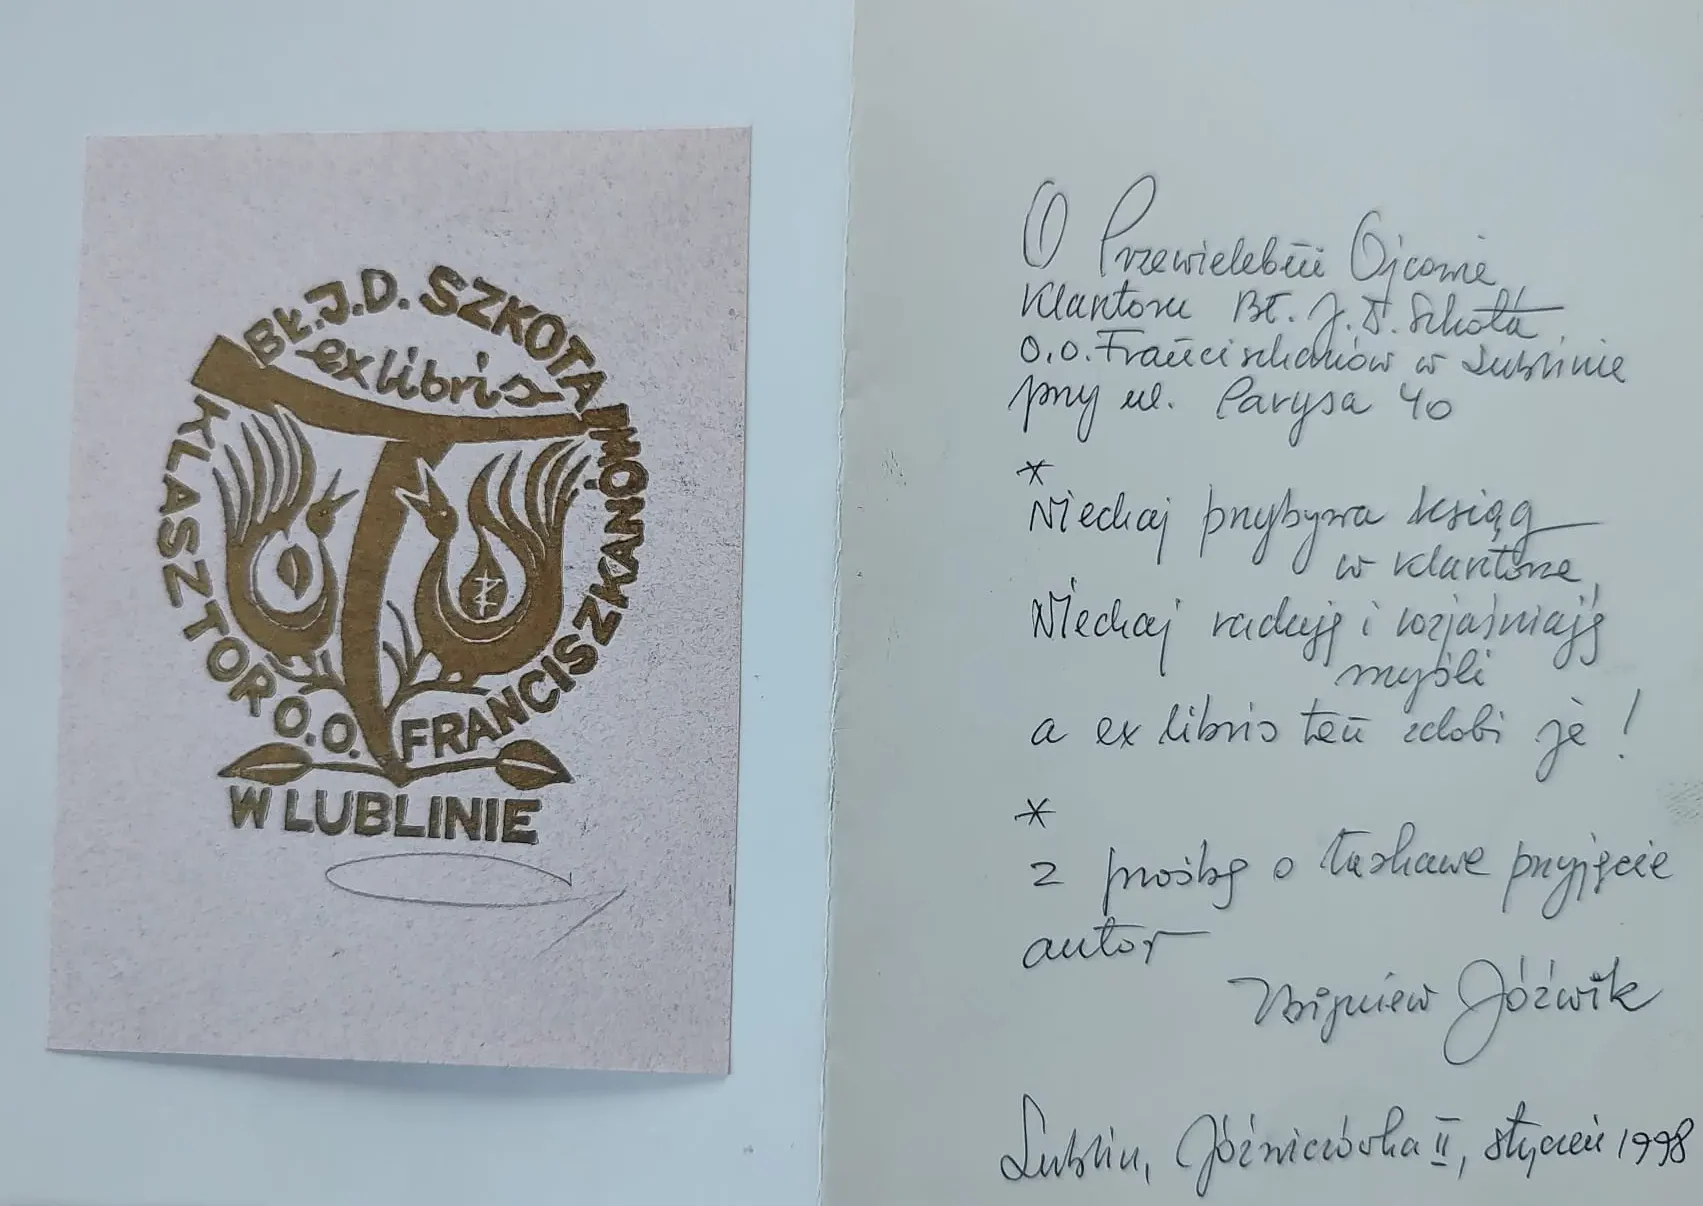 BŁ. J. D. SZKOTA
ex libris
KLASZTOR O.O. FRANCISZKANÓW
W LUBLINIE
O Przewielebni Ojcowie,
Klasztoru Bł. J. D. Szkota
O.O. Franciszkanów w Lublinie
przy ul. Parysa 40
*
Niechaj przybywa ksiąg
w klasztorze,
Niechaj radują i rozjaśniają
myśli
a ex libris ten zdobi je!
*
z prośbą o łaskawe przyjęcie
autor
Zbigniew Jóźwik
Lublin, Jóźwiczówka II, styczeń 1998